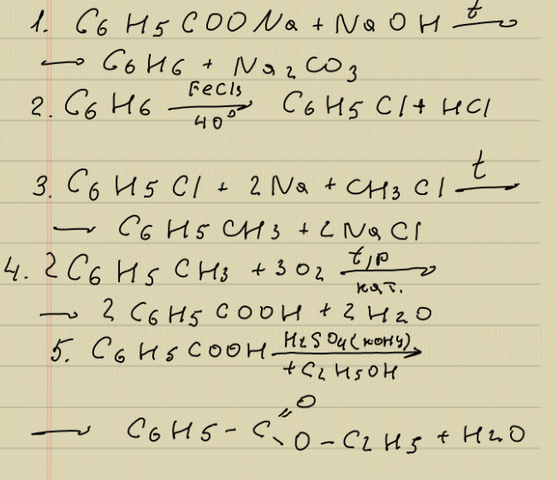 1. C6H5COONa + NaOH t→
→ C6H6 + Na2CO3
2. C6H6 FeCl3 → 40° C6H5Cl + HCl
3. C6H5Cl + 2Na + CH3Cl t→
→ C6H5CH3 + 2NaCl
4. 2C6H5CH3 + 3O2 t,p → кат.
→ 2C6H5COOH + 2H2O
5. C6H5COOH H2SO4(конц) → +C2H5OH
→ C6H5-C=O-O-C2H5 + H2O